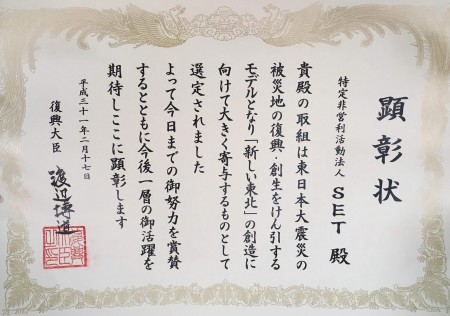 顕彰状
特定非営利活動法人
SET 殿
貴殿の取組は東日本大震災の
被災地の復興・創生をけん引する
モデルとなり「新しい東北」の創造に
向けて大きく寄与するものとして
選定されました
よって今日までの御努力を賞賛
するとともに今後一層の御活躍を
期待しここに顕彰します
平成三十一年二月十七日
復興大臣
渡辺博道